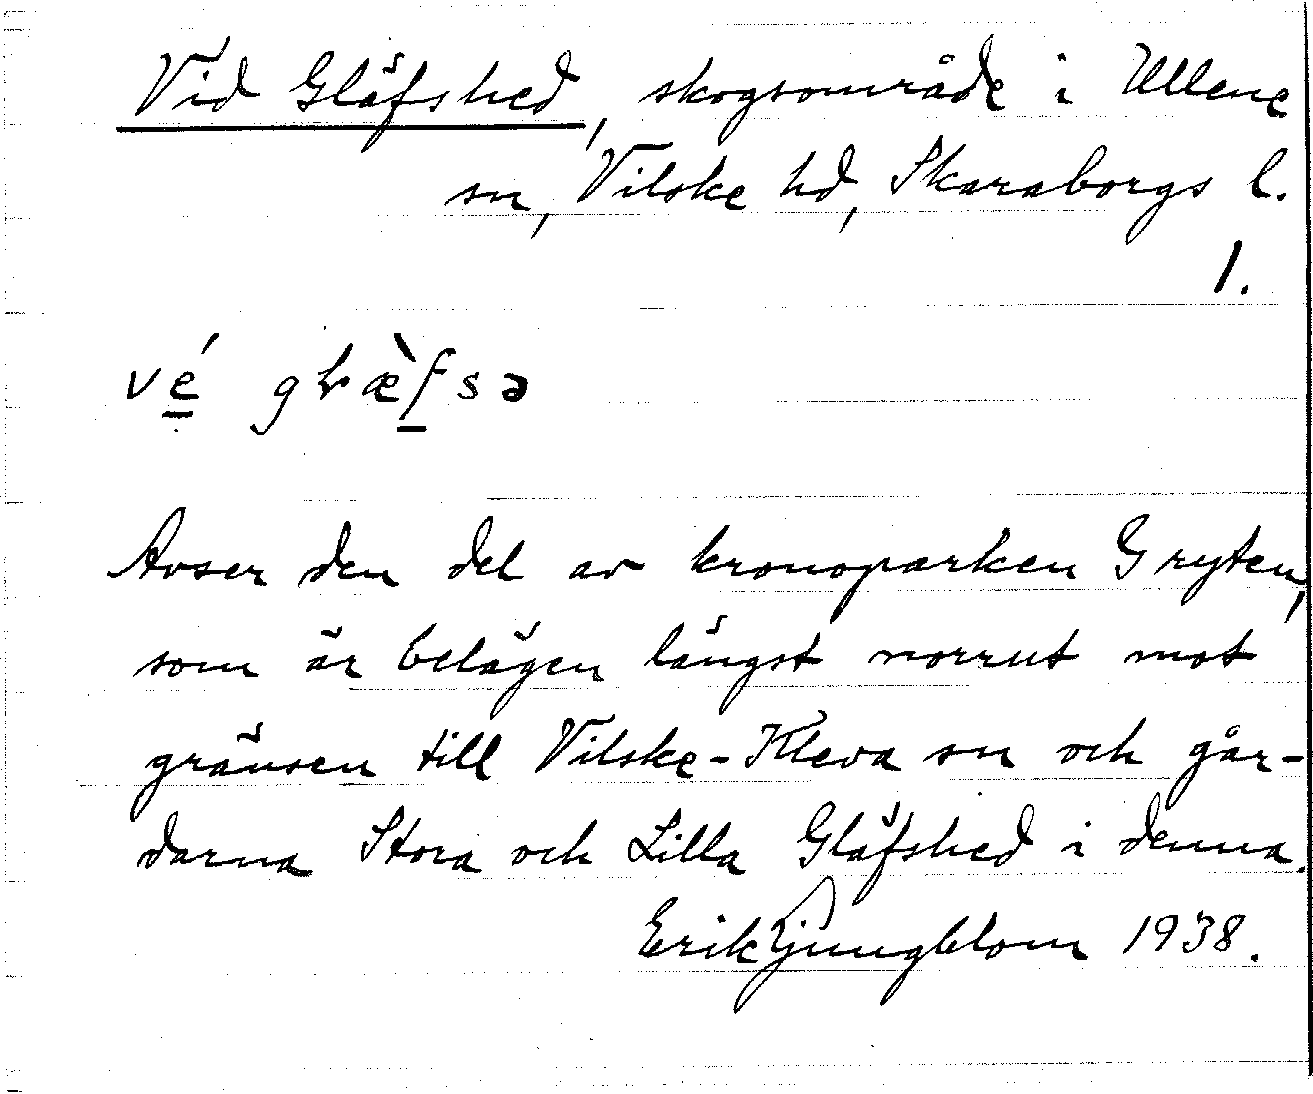 Vid Gläfshed, skogsområde i Ullene
sn, Vilske hd, Skaraborgs l.
1.
vé gƚæ̀fsə
Avser den del av kronoparken Gryten,
som är belägen längst norrut mot
gränsen till Vilske-Kleva sn och går-
darna Stora och Lilla Gläfshed i denna.
Erik Ljungblom 1938.